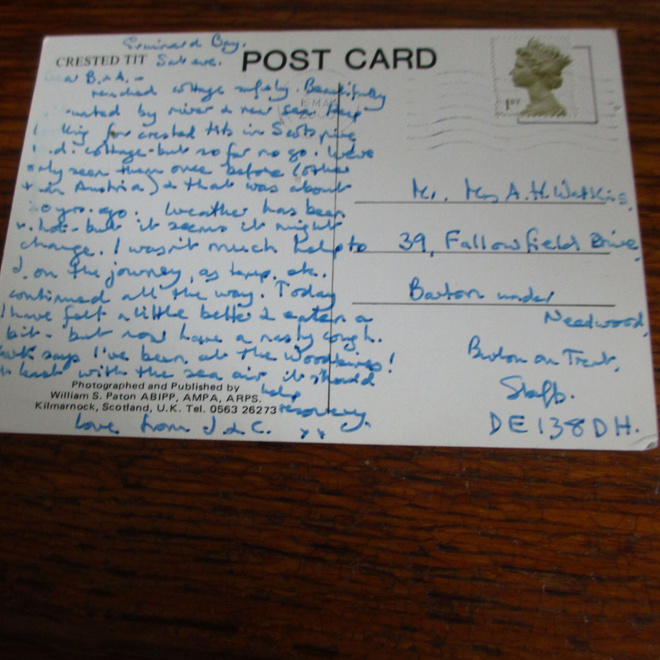 Gruinard Bay.
CRESTED TIT Sat eve. POST CARD
Dear B. & A. -
reached cottage safely. Beautifully
situated by river & near sea. Keep
king for crested tits in Scots pine
cottage - but so far no go. We've
only seen them once before (other
than Austria) & that was about
yrs. ago. Weather has been
v. hot - but it seems it might
change. I wasn't much help to
J. on the journey, as temp. etc.
continued all the way. Today
I have felt a little better & eaten a
bit - but now have a nasty cough.
says I've been at the Woodbines!
At least with the sea air it should
help
recovery.
Love from J & C. xx
Photographed and Published by
William S. Paton ABIPP, AMPA, ARPS.
Kilmarnock, Scotland, U.K. Tel. 0563 26273
1ST
Mr. Mrs A. H. Watkins,
39, Fallowfield Drive,
Barton under
Needwood,
Burton on Trent,
Staffs.
DE13 8DH.